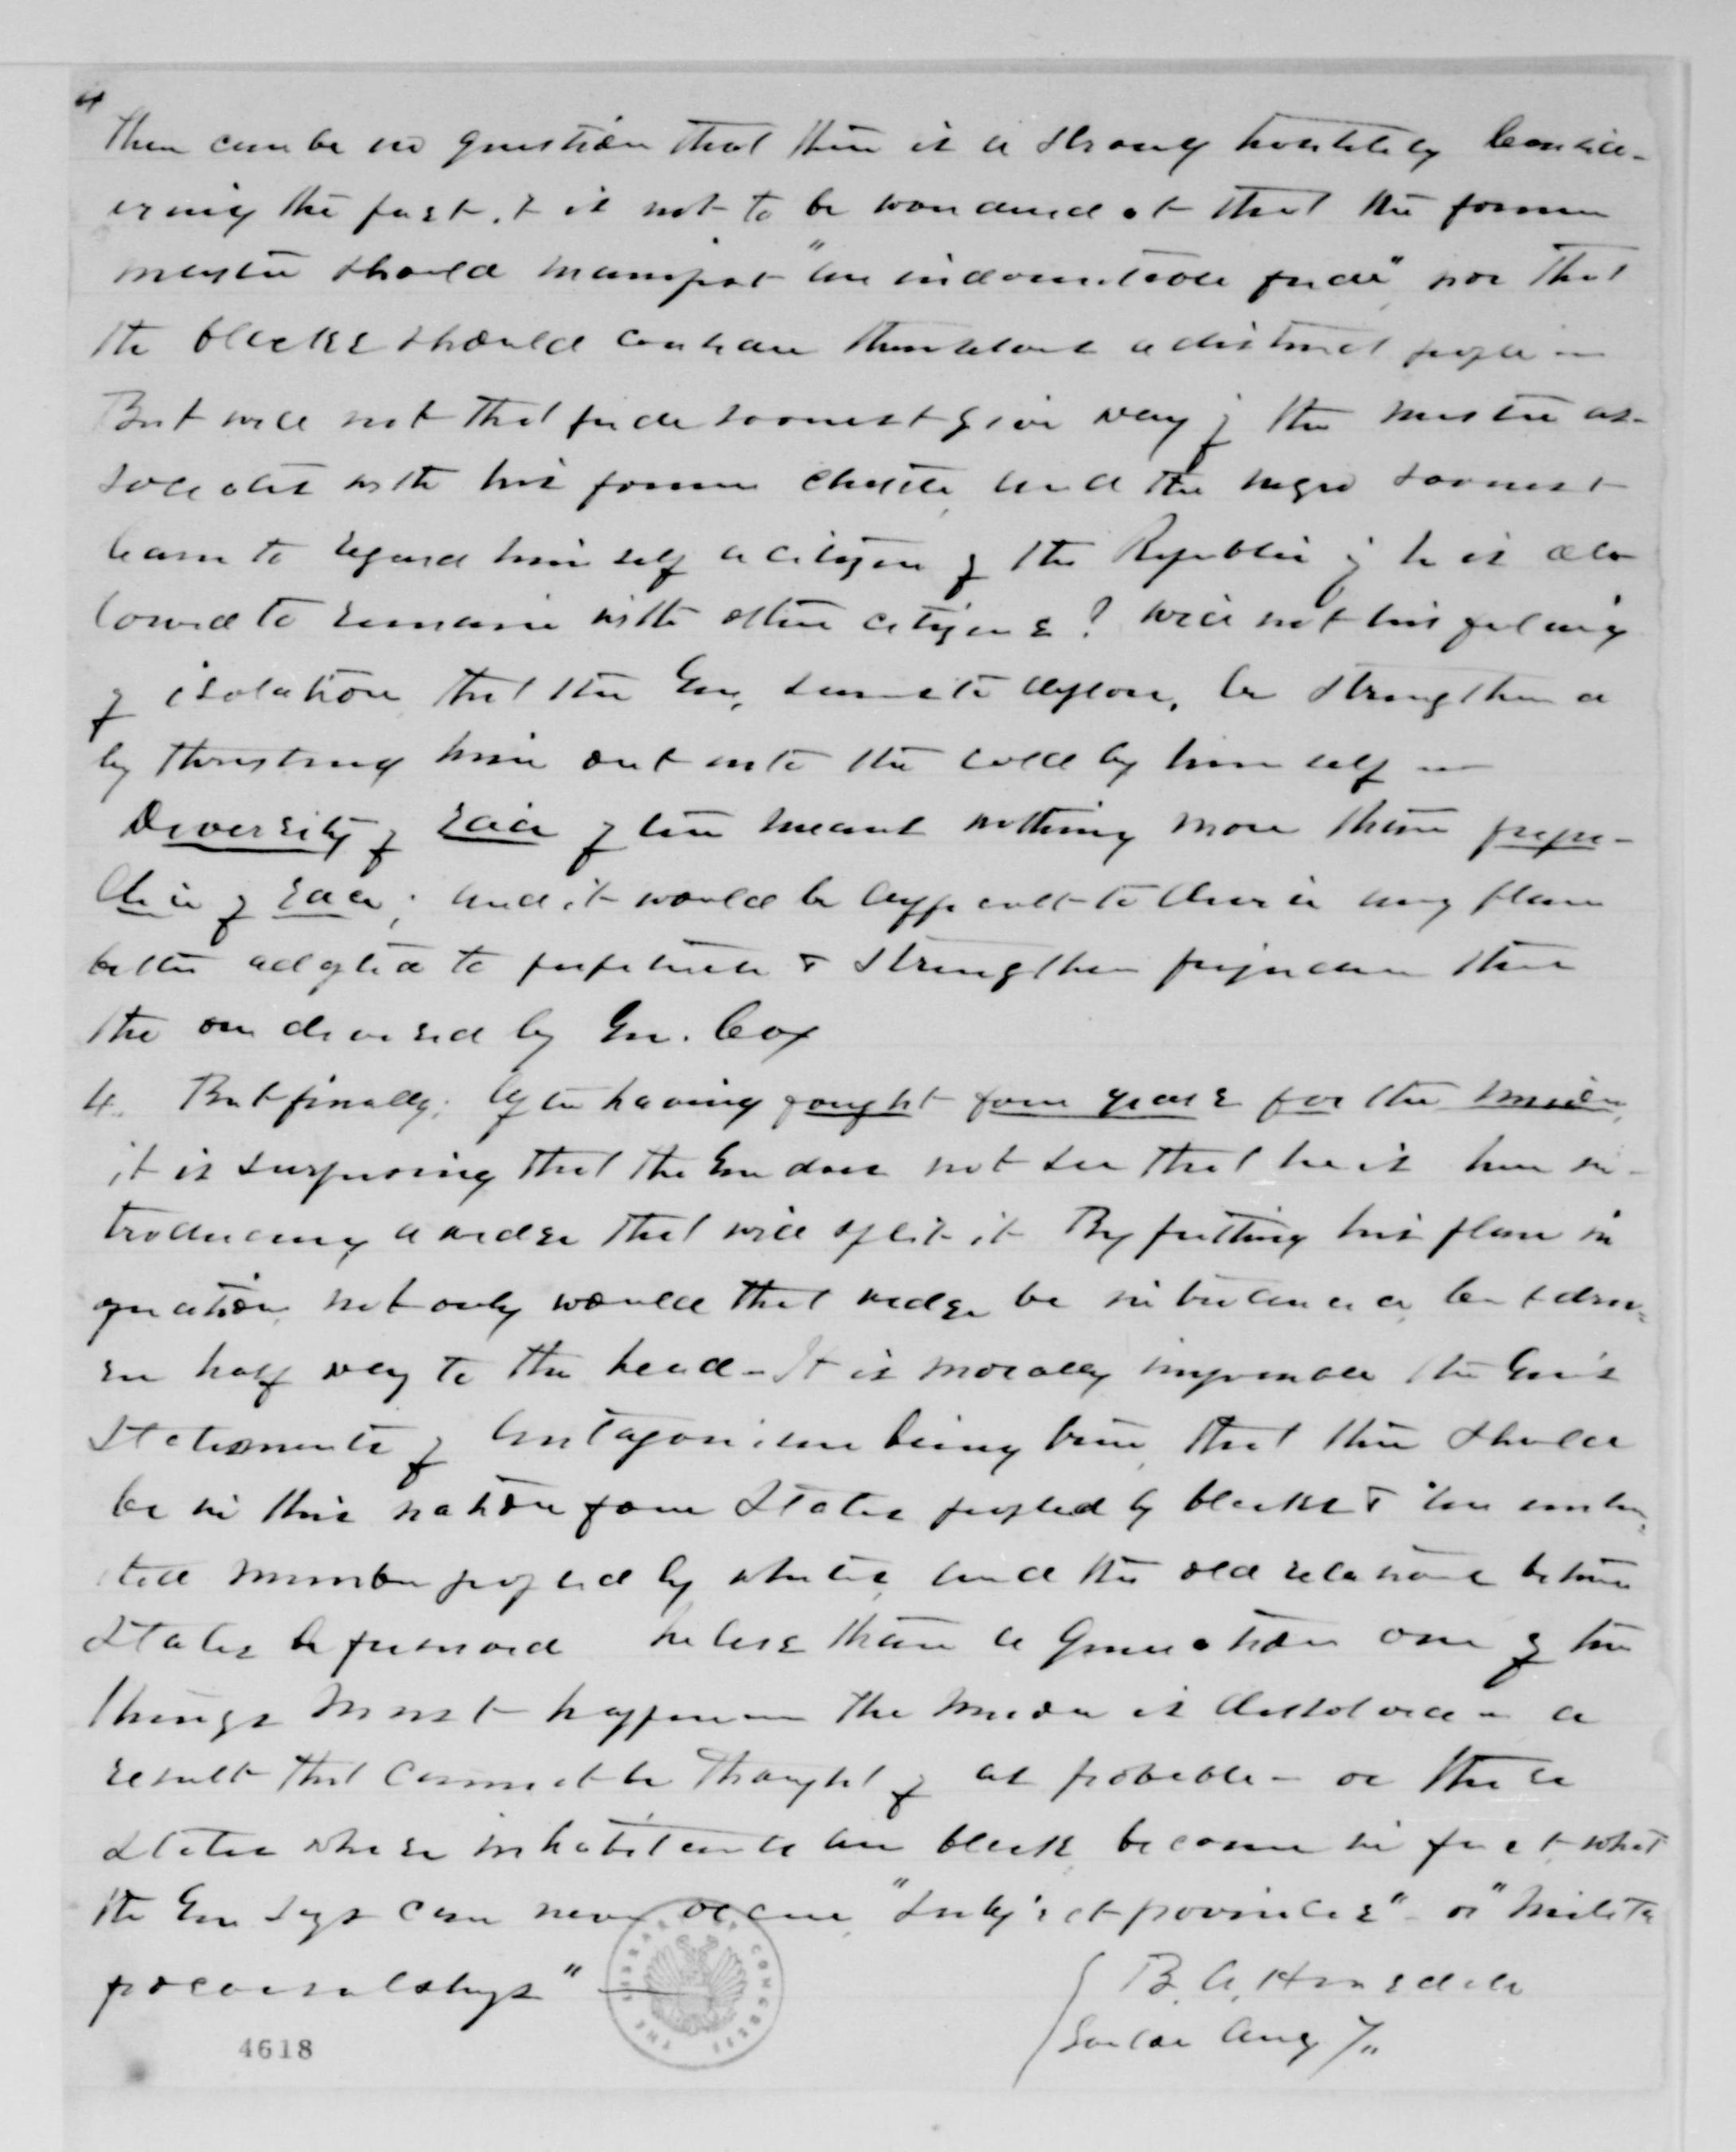 4
There can be no question that there is a strong hostility Consid-
ering the past, it is not to be wondered at that the former
master should manifest "an indomitable pride" nor that
the blacks should consider themselves a distinct people —
But will not that pride soonest give way if the master as-
sociates with his former chattle, and the negro soonest
learn to regard himself a citizen of the Republic if he is al-
lowed to remain with other citizens? Will not his feeling
of isolation that the Gen. seems to deplore, be strengthened
by thrusting him out into the cold by himself —
Diversity of race often means nothing more than preju-
dice of race; and it would be difficult to devise any plan
better adapted to perpetuate & strengthen prejudice than
the one devised by Gen. Cox
4. But finally; After having fought four years for the Union,
it is surprising that the Gen does not see that he is here in-
troducing a wedge that will split it By putting his plan in
operation, not only would that wedge be introduced, but driv-
en half way to the head - It is morally impossible the Gen's
statements of antagonism being true, that there should
be in this nation four States peopled by blacks & an unlim-
ited number peopled by whites, and the old relations between
States be preserved In less than a generation one of two
things must happen — The Union is dissolved - a
result that cannot be thought of as probable - or these
States whose inhabitants are black become in fact what
the Gen says can never occur, "subject provinces" - or "milita
proconsulships" —
B. A. Hinsdale
Solon Aug 7"
THE LIBRARY OF CONGRESS
4618